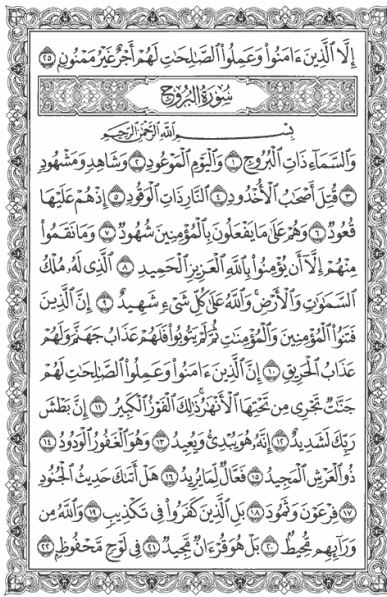 إِلَّا ٱلَّذِينَ ءَامَنُوا۟ وَعَمِلُوا۟ ٱلصَّـٰلِحَـٰتِ لَهُمْ أَجْرٌ غَيْرُ مَمْنُونٍ ٢٥
سُورَةُ الْبُرُوجِ
بِسْمِ ٱللَّهِ ٱلرَّحْمَـٰنِ ٱلرَّحِيمِ
وَٱلسَّمَآءِ ذَاتِ ٱلْبُرُوجِ ١ وَٱلْيَوْمِ ٱلْمَوْعُودِ ٢ وَشَاهِدٍ وَمَشْهُودٍ
٣ قُتِلَ أَصْحَـٰبُ ٱلْأُخْدُودِ ٤ ٱلنَّارِ ذَاتِ ٱلْوَقُودِ ٥ إِذْ هُمْ عَلَيْهَا
قُعُودٌ ٦ وَهُمْ عَلَىٰ مَا يَفْعَلُونَ بِٱلْمُؤْمِنِينَ شُهُودٌ ٧ وَمَا نَقَمُوا۟
مِنْهُمْ إِلَّآ أَن يُؤْمِنُوا۟ بِٱللَّهِ ٱلْعَزِيزِ ٱلْحَمِيدِ ٨ ٱلَّذِى لَهُۥ مُلْكُ
ٱلسَّمَـٰوَٰتِ وَٱلْأَرْضِ ۚ وَٱللَّهُ عَلَىٰ كُلِّ شَىْءٍ شَهِيدٌ ٩ إِنَّ ٱلَّذِينَ
فَتَنُوا۟ ٱلْمُؤْمِنِينَ وَٱلْمُؤْمِنَـٰتِ ثُمَّ لَمْ يَتُوبُوا۟ فَلَهُمْ عَذَابُ جَهَنَّمَ وَلَهُمْ
عَذَابُ ٱلْحَرِيقِ ١٠ إِنَّ ٱلَّذِينَ ءَامَنُوا۟ وَعَمِلُوا۟ ٱلصَّـٰلِحَـٰتِ لَهُمْ
جَنَّـٰتٌ تَجْرِى مِن تَحْتِهَا ٱلْأَنْهَـٰرُ ۚ ذَٰلِكَ ٱلْفَوْزُ ٱلْكَبِيرُ ١١ إِنَّ بَطْشَ
رَبِّكَ لَشَدِيدٌ ١٢ إِنَّهُۥ هُوَ يُبْدِئُ وَيُعِيدُ ١٣ وَهُوَ ٱلْغَفُورُ ٱلْوَدُودُ ١٤
ذُو ٱلْعَرْشِ ٱلْمَجِيدُ ١٥ فَعَّالٌ لِّمَا يُرِيدُ ١٦ هَلْ أَتَىٰكَ حَدِيثُ ٱلْجُنُودِ
١٧ فِرْعَوْنَ وَثَمُودَ ١٨ بَلِ ٱلَّذِينَ كَفَرُوا۟ فِى تَكْذِيبٍ ١٩ وَٱللَّهُ مِن
وَرَآئِهِم مُّحِيطٌ ٢٠ بَلْ هُوَ قُرْءَانٌ مَّجِيدٌ ٢١ فِى لَوْحٍ مَّحْفُوظٍۭ ٢٢